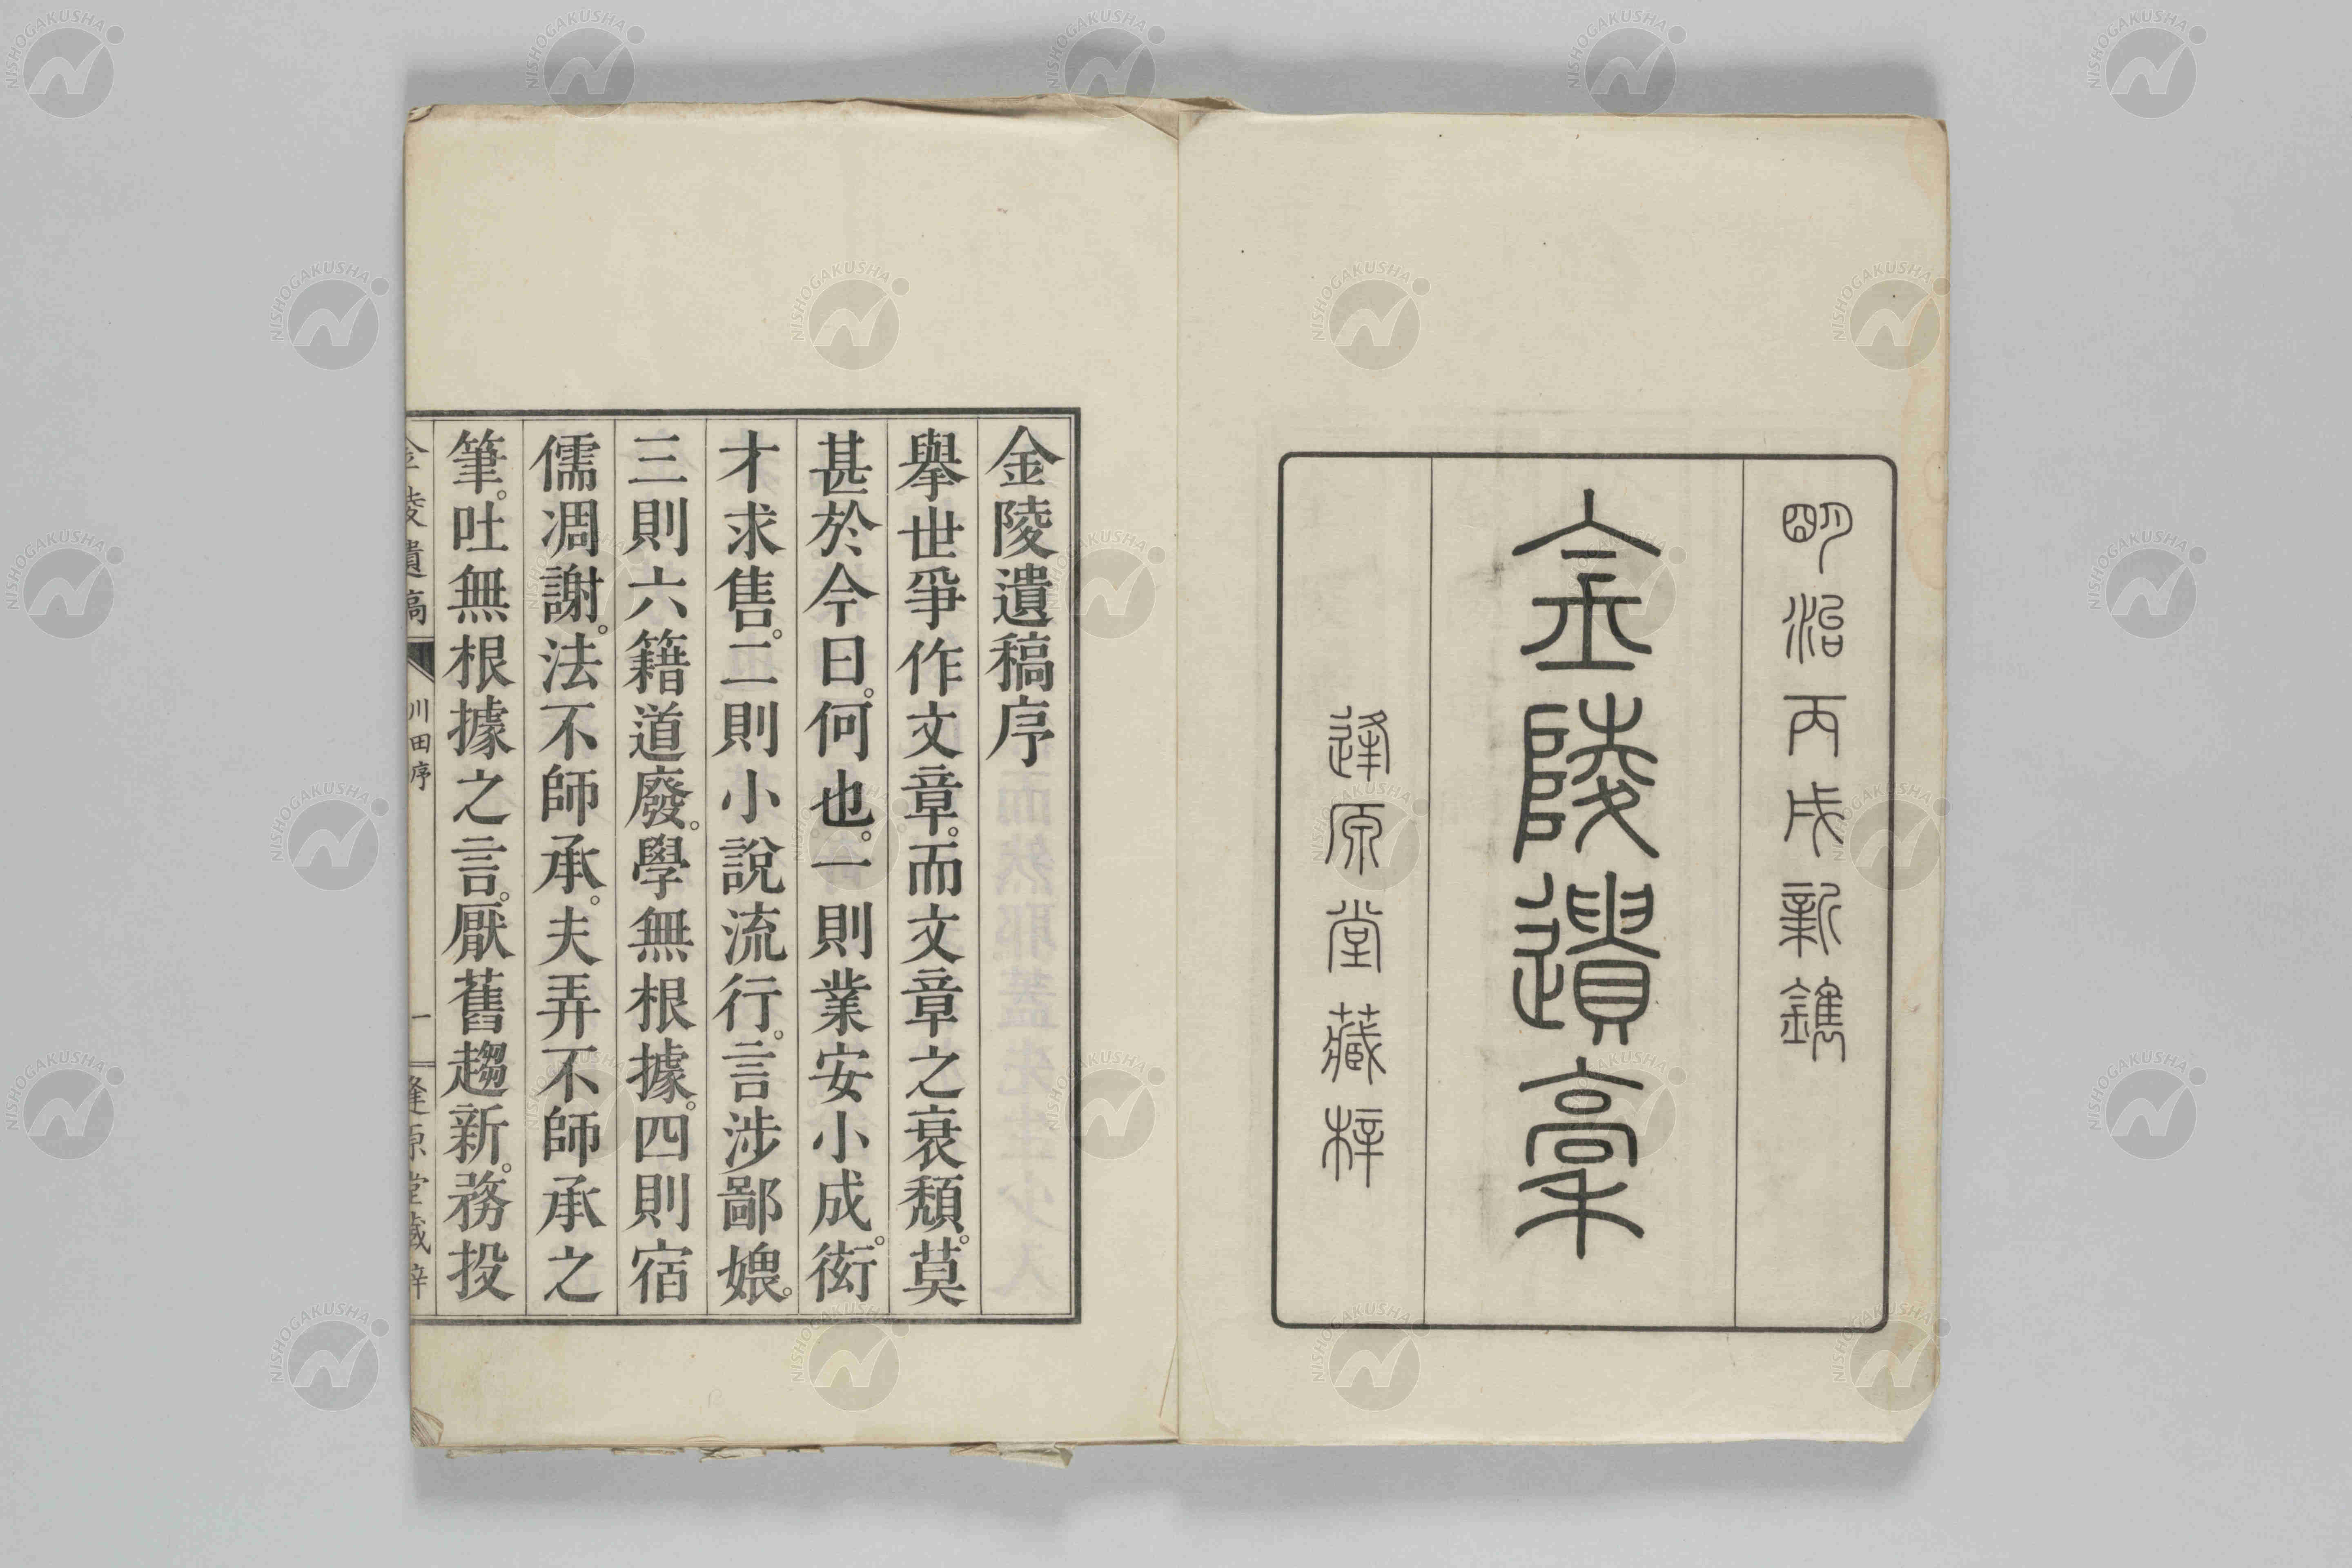 明治丙戌新鐫
金陵遺稾
逢原堂藏梓
金陵遺稿序
擧世爭作文章。而文章之衰頹。莫
甚於今日。何也。一則業安小成。衒
才求售。二則小說流行。言涉鄙媟。
三則六籍道廢。學無根據。四則宿
儒凋謝。法不師承。夫弄不師承之
筆。吐無根據之言。厭舊趨新。務投
金陵遺稿 川田序 一 逢原堂藏梓
NISHOGAKUSHA